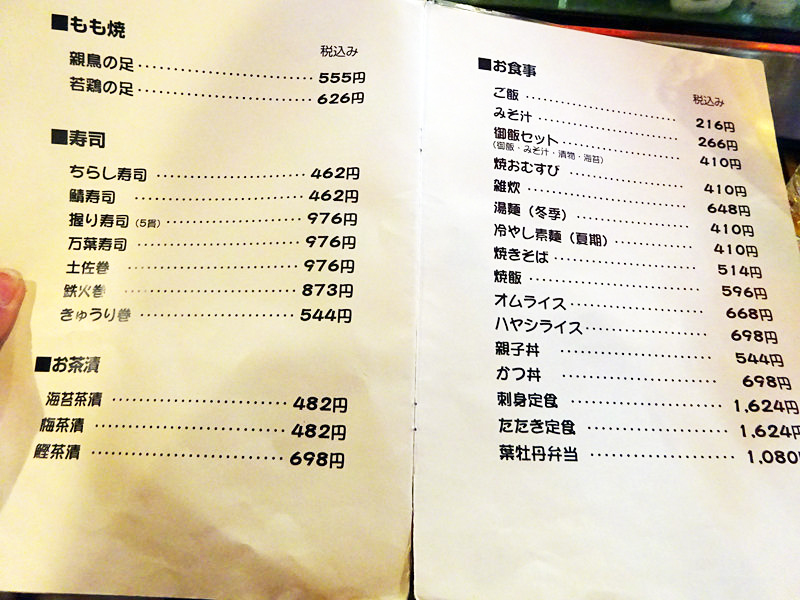 ■もも焼
税込み
親鳥の足 555円
若鶏の足 626円
■寿司
ちらし寿司 462円
鯖寿司 462円
握り寿司(5貫) 976円
万葉寿司 976円
土佐巻 976円
鉄火巻 873円
きゅうり巻 544円
■お茶漬
海苔茶漬 482円
梅茶漬 482円
鰹茶漬 698円
■お食事
税込み
ご飯 216円
みそ汁 266円
御飯セット 410円
(御飯・みそ汁・漬物・海苔)
焼おむすび 410円
雑炊 648円
湯麺(冬季) 410円
冷やし素麺(夏期) 410円
焼きそば 514円
焼飯 596円
オムライス 668円
ハヤシライス 698円
親子丼 544円
かつ丼 698円
刺身定食 1,624円
たたき定食 1,624円
葉牡丹弁当 1,080円